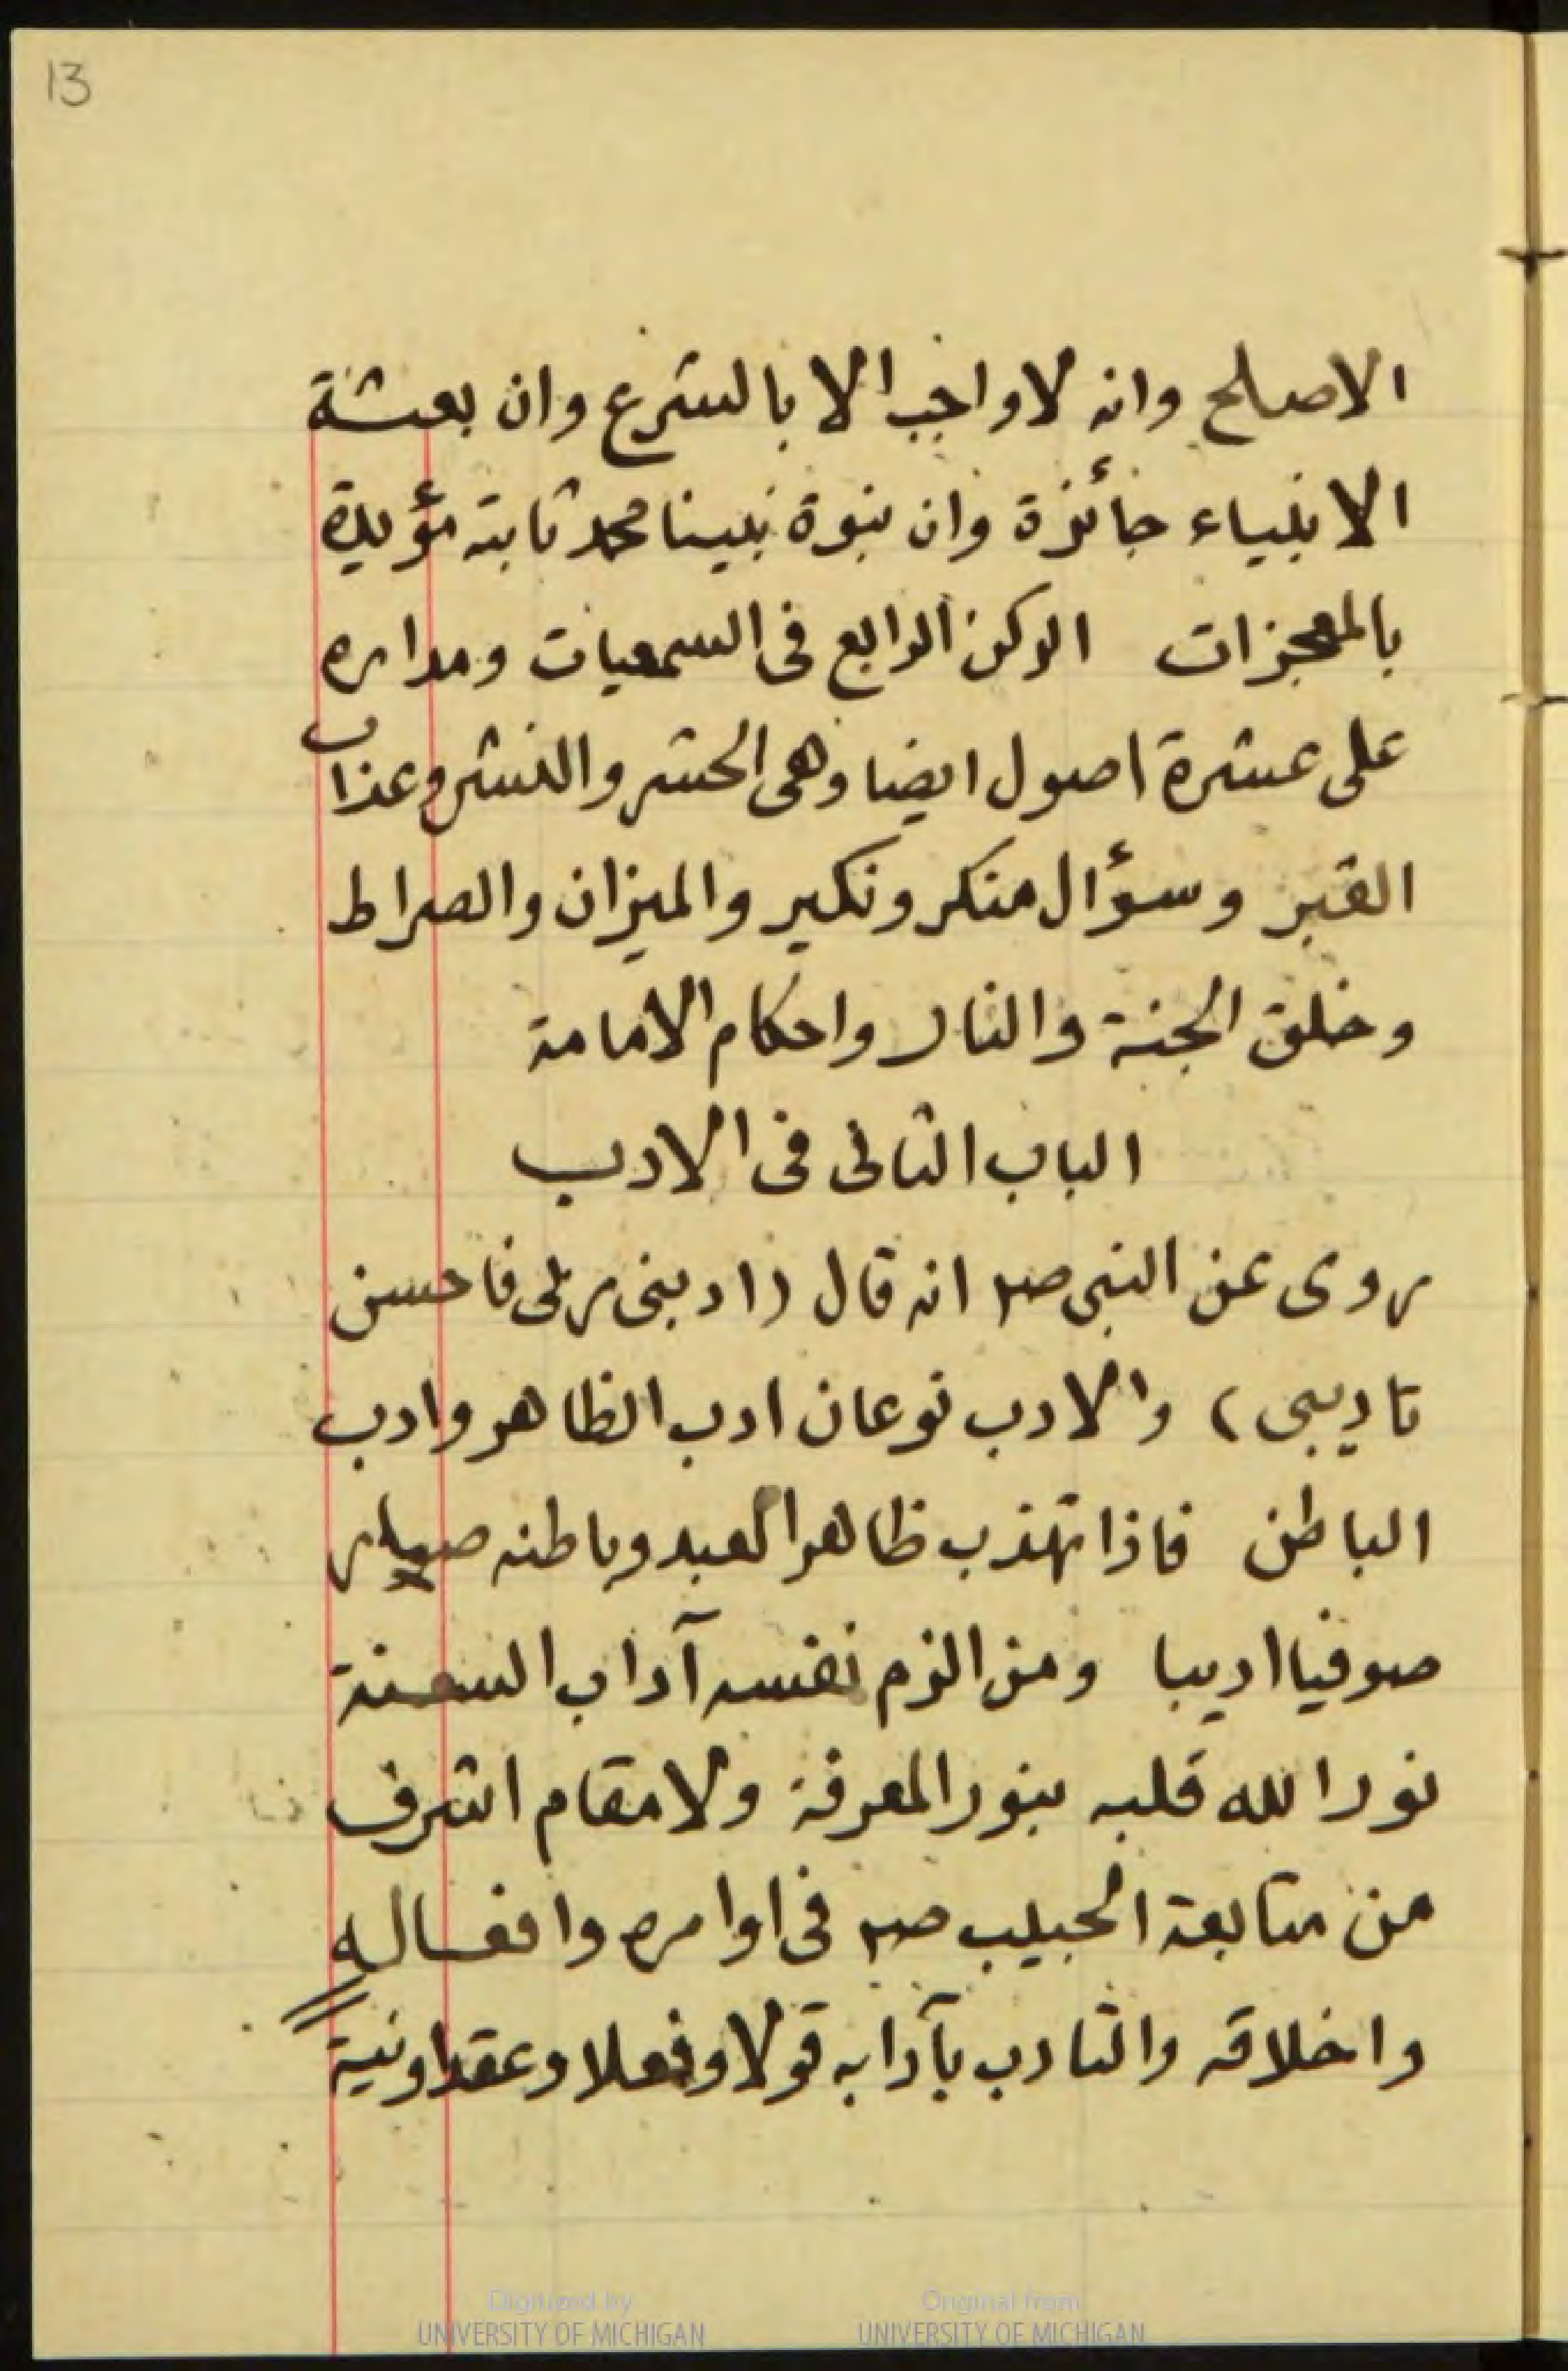 13
الاصلح وانه لا واجب الا بالشرع وان بعثة
الانبياء جائزة وان نبوة نبينا محمد ثابتة مؤيدة
بالمعجزات الركن الرابع فى السمعيات ومداره
على عشرة اصول ايضا وهى الحشر والنشر وعذاب
القبر وسؤال منكر ونكير والميزان والصراط
وخلق الجنة والنار واحكام الامامة
الباب الثانى فى الادب
روى عن النبى صم انه قال (ادبنى ربى فاحسن
تاديبى) والادب نوعان ادب الظاهر وادب
الباطن فاذا تهذب ظاهر العبد وباطنه صار
صوفيا اديبا ومن الزم نفسه آداب السنة
نور الله قلبه بنور المعرفة ولا مقام اشرف
من متابعة الحبيب صم فى اوامره وافعاله
واخلاقه والتادب بآدابه قولا وفعلا وعقدا ونية
Digitized by
UNIVERSITY OF MICHIGAN
Original from
UNIVERSITY OF MICHIGAN